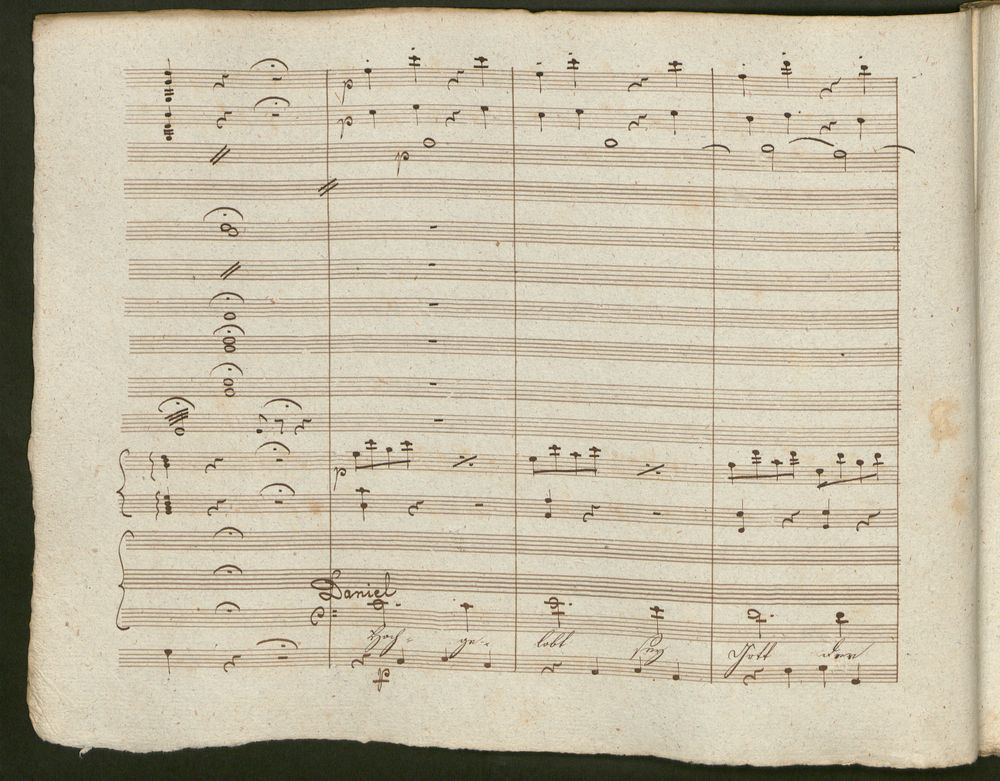 p
p
p
p
Daniel
Hoch- ge- lobt sey Gott der
p